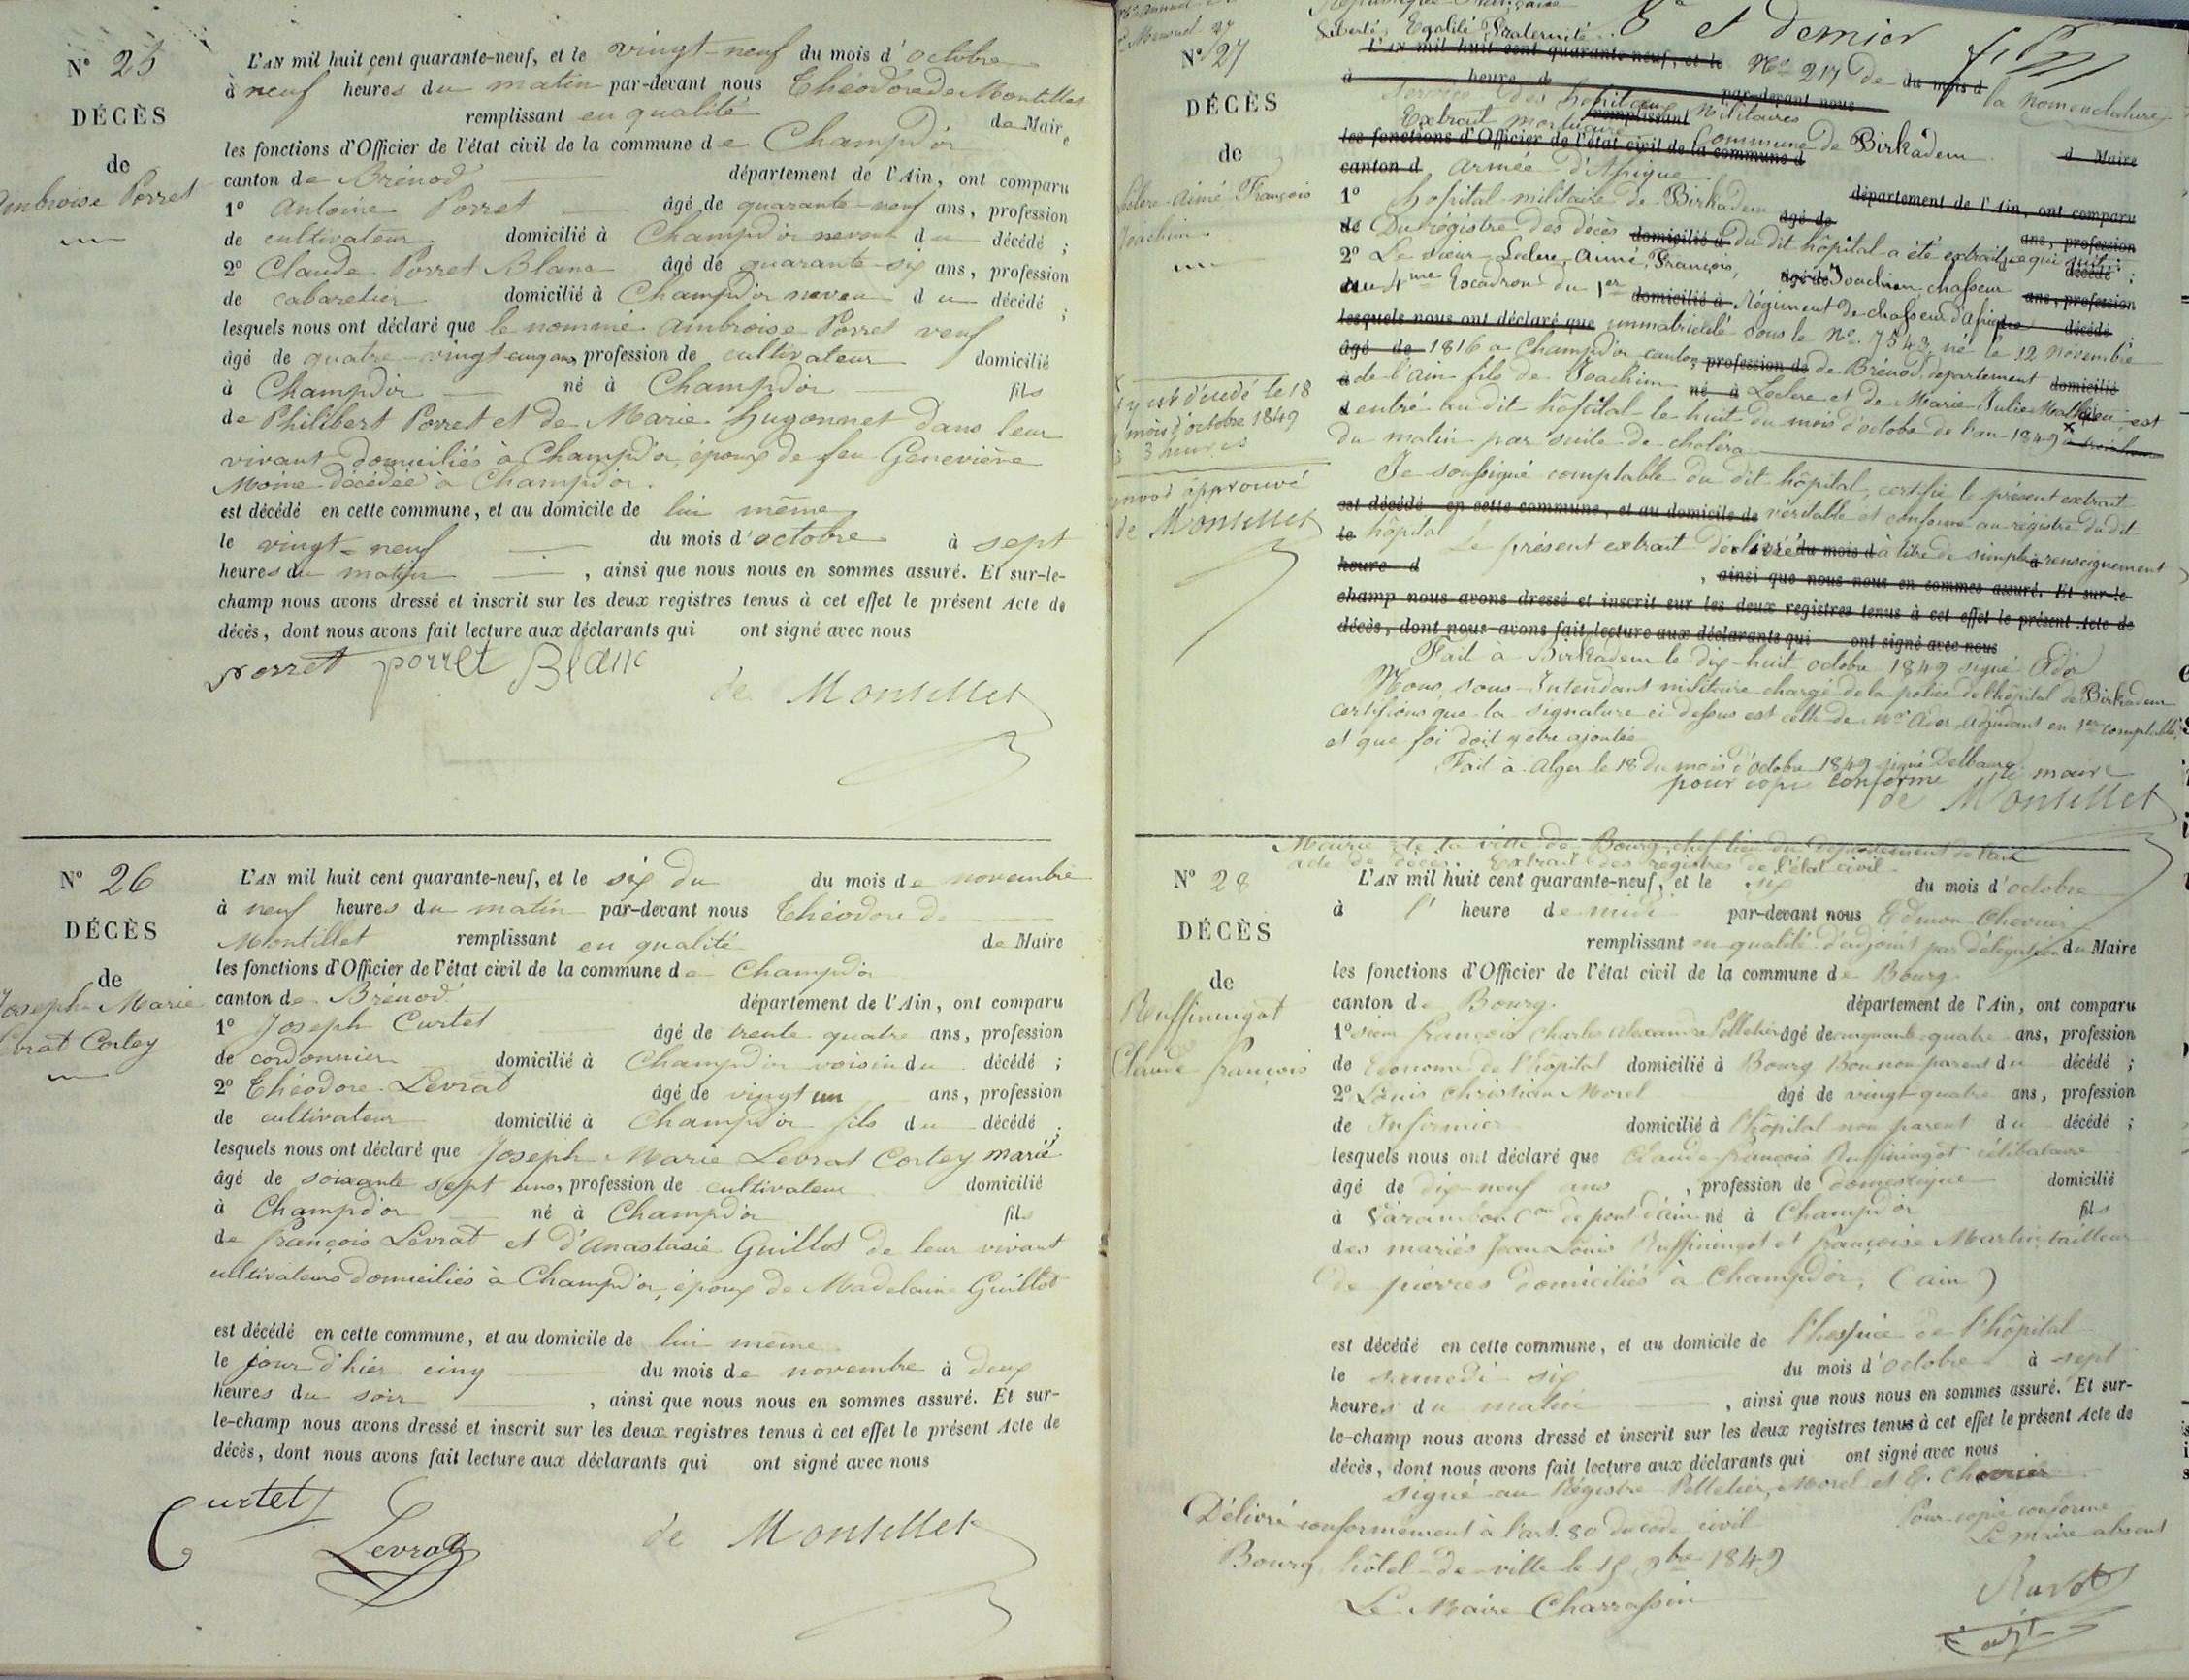 N° 25
DÉCÈS
de
Ambroise Porret
L'AN mil huit cent quarante-neuf, et le vingt-neuf du mois d'octobre
à neuf heures du matin par-devant nous Théodore de Montillet
remplissant en qualité de Maire
les fonctions d'Officier de l'état civil de la commune de Champdor
canton de Brénod département de l'Ain, ont comparu
1° Antoine Porret âgé de quarante-neuf ans, profession
de cultivateur domicilié à Champdor neveu du décédé ;
2° Claude Porret Blanc âgé de quarante-six ans, profession
de cabaretier domicilié à Champdor neveu du décédé ;
lesquels nous ont déclaré que le nommé Ambroise Porret veuf
âgé de quatre-vingt cinq ans, profession de cultivateur domicilié
à Champdor né à Champdor fils
de Philibert Porret et de Marie Hugonnet dans leur
vivant domiciliés à Champdor, époux de feu Geneviève
Moine décédée à Champdor.
est décédé en cette commune, et au domicile de lui même
le vingt-neuf du mois d'octobre à sept
heures du matin , ainsi que nous nous en sommes assuré. Et sur-le-
champ nous avons dressé et inscrit sur les deux registres tenus à cet effet le présent Acte de
décès, dont nous avons fait lecture aux déclarants qui ont signé avec nous
porret porret Blanc
de Montillet
N° 26
DÉCÈS
de
Joseph Marie
Levrat Cortey
L'AN mil huit cent quarante-neuf, et le six du du mois de novembre
à neuf heures du matin par-devant nous Théodore de
Montillet remplissant en qualité de Maire
les fonctions d'Officier de l'état civil de la commune de Champdor
canton de Brénod département de l'Ain, ont comparu
1° Joseph Curtet âgé de trente quatre ans, profession
de cordonnier domicilié à Champdor voisin du décédé ;
2° Théodore Levrat âgé de vingt un ans, profession
de cultivateur domicilié à Champdor fils du décédé ;
lesquels nous ont déclaré que Joseph Marie Levrat Cortey marié
âgé de soixante sept ans, profession de cultivateur domicilié
à Champdor né à Champdor fils
de françois Levrat et d'Anastasie Guillot de leur vivant
cultivateurs domiciliés à Champdor, époux de Madelaine Guillot
est décédé en cette commune, et au domicile de lui même
le jour d'hier cinq du mois de novembre à deux
heures du soir , ainsi que nous nous en sommes assuré. Et sur-
le-champ nous avons dressé et inscrit sur les deux registres tenus à cet effet le présent Acte de
décès, dont nous avons fait lecture aux déclarants qui ont signé avec nous
Curtet
Levrat
de Montillet
République Française
Liberté, Egalité, Fraternité. 8e et dernier
N° 27
DÉCÈS
de
Leclerc Aimé François
Joachim
L'AN mil huit cent quarante-neuf, et le N° 217 de du mois d la nomenclature
à heure de par-devant nous
Service des hôpitaux militaires
remplissant
Extrait mortuaire Commune de Birkadem d Maire
les fonctions d'Officier de l'état civil de la commune d
canton d Armée d'Afrique département de l'Ain, ont comparu
1° hôpital militaire de Birkadem âgé de ans, profession
de Du régistre des décès domicilié à du dit hôpital a été extrait ce qui suit : décédé ;
2° Le sieur Leclerc, Aimé, François, âgé de Joachim, chasseur ans, profession
au 4me Escadron du 1er domicilié à Régiment de chasseur d'Afrique décédé ;
lesquels nous ont déclaré que immatriculé sous le N° 7543, né le 12 novembre
âgé de 1816 a Champdor canton profession de de Brénod, département domicilié
à de l'Ain fils de Joachim né à Leclerc et de Marie Julie Mathieu est
d entré au dit hôpital le huit du mois d'octobre de l'an 1849 x
du matin par suite de choléra
x y est décédé le 18
mois d'octobre 1849
à 3 heures
renvoi approuvé
de Montillet
Je soussigné comptable du dit hôpital, certifie le présent extrait
est décédé en cette commune, et au domicile de véritable et conforme au régistre du dit
le hôpital Le présent extrait délivré du mois d à titre de simple à renseignement
heure d , ainsi que nous nous en sommes assuré. Et sur-le-
champ nous avons dressé et inscrit sur les deux registres tenus à cet effet le présent Acte de
décès, dont nous avons fait lecture aux déclarants qui ont signé avec nous
Fait a Birkadem le dix-huit octobre 1849 signé Ader
Nous, sous-Intendant militaire chargé de la police de l'hôpital de Birkadem
certifions que la signature ci dessus est celle de Mr Ader adjudant en 1er comptable,
et que foi doit y être ajoutée
Fait à Alger le 18 du mois d'octobre 1849 signé
pour copie conforme le maire
de Montillet
Mairie de la ville de Bourg, chef lieu du département de l'Ain
acte de décès. Extrait des registres de l'état civil.
N° 28
DÉCÈS
de
Ruffiningot
Claude françois
L'AN mil huit cent quarante-neuf, et le six du mois d'octobre
à l' heure de midi par-devant nous Edmon Chevrier
remplissant en qualité d'adjoint par délégation du Maire
les fonctions d'Officier de l'état civil de la commune de Bourg
canton de Bourg. département de l'Ain, ont comparu
1° sieur françois Charles Alexandre Pelletier âgé de cinquante quatre ans, profession
de Econome de l'hôpital domicilié à Bourg non parent du décédé ;
2° Louis Christian Morel âgé de vingt-quatre ans, profession
de Infirmier domicilié à l'hôpital non parent du décédé ;
lesquels nous ont déclaré que Claude françois Ruffiningot célibataire
âgé de dix-neuf ans , profession de domestique domicilié
à Varambon Con de pont d'ain né à Champdor fils
des mariés Jean Louis Ruffiningot et françoise Martin, tailleur
de pierres domiciliés à Champdor, (ain)
est décédé en cette commune, et au domicile de l'hospice de l'hôpital
le samedi six du mois d'octobre à sept
heures du matin , ainsi que nous nous en sommes assuré. Et sur-
le-champ nous avons dressé et inscrit sur les deux registres tenus à cet effet le présent Acte de
décès, dont nous avons fait lecture aux déclarants qui ont signé avec nous
signé au Régistre Pelletier, Morel et E. Chevrier
Délivré conformément à l'art. 80 du code civil
Bourg, hôtel-de-ville le 15 9bre 1849
Le Maire Charrassin
Pour copie conforme
Le maire absent